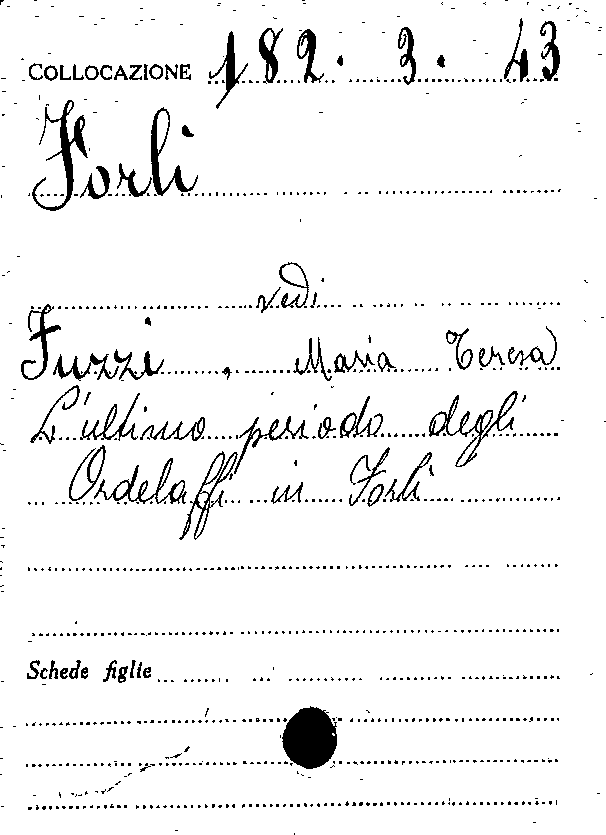 COLLOCAZIONE 182. 3. 43
Forlì
vedi
Fuzzi, Maria Teresa
L'ultimo periodo degli
Ordelaffi in Forlì
Schede figlie